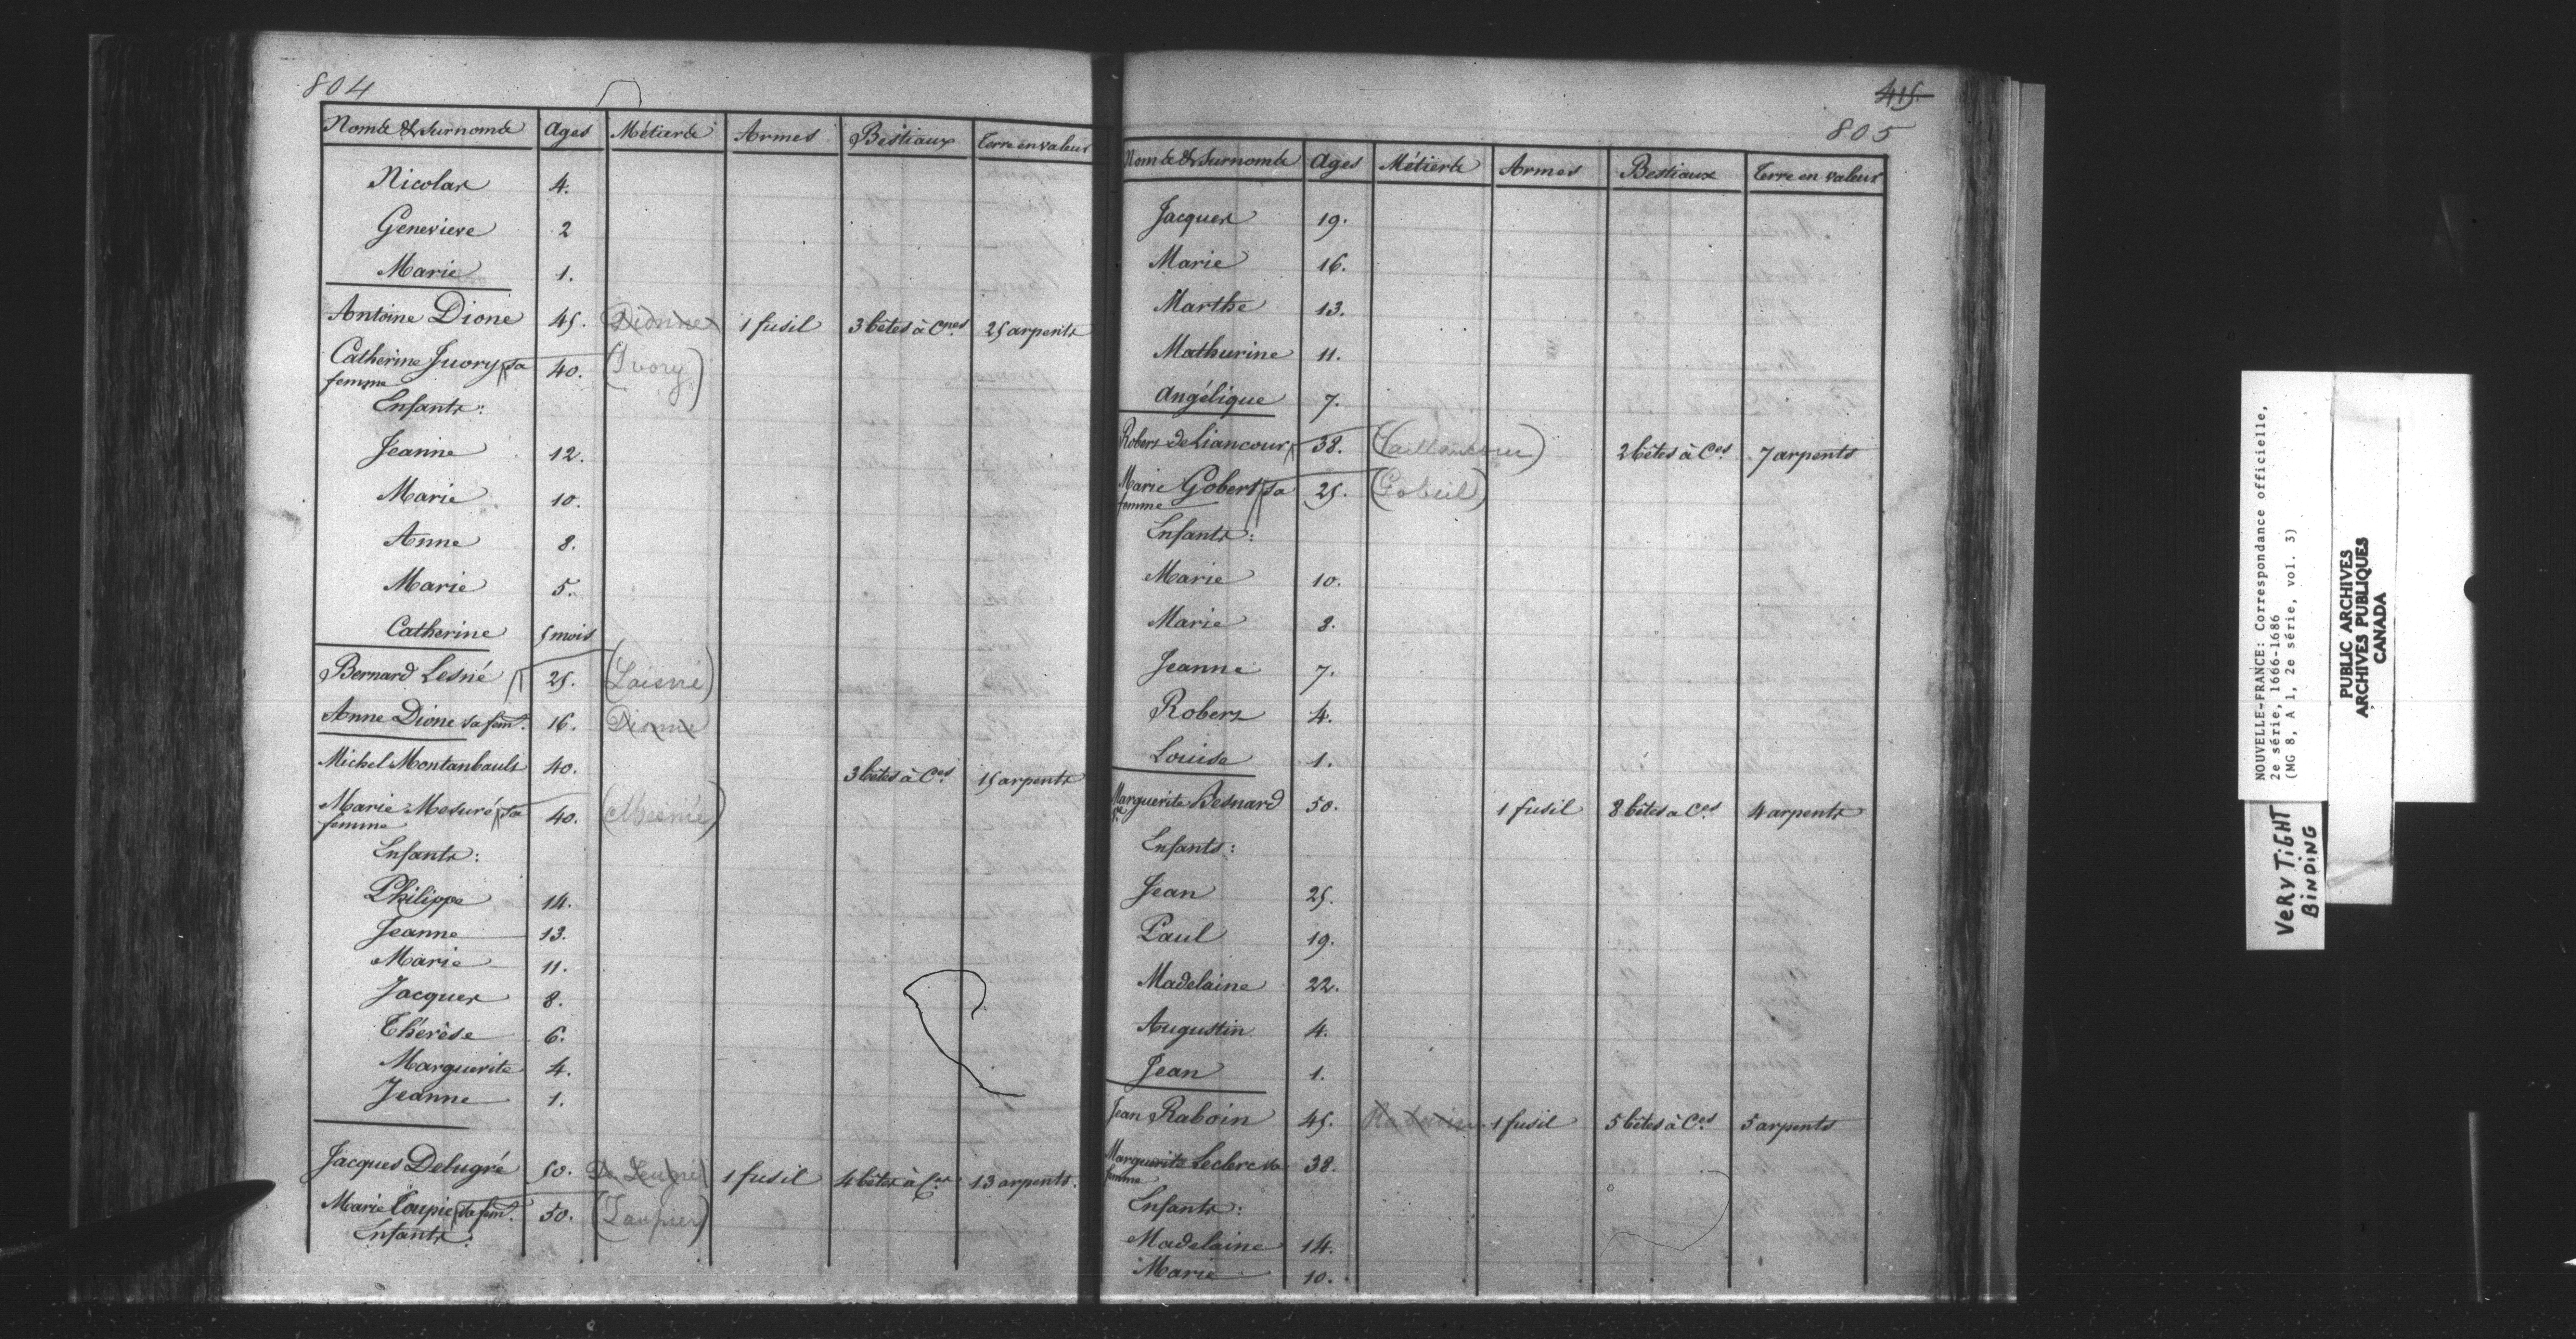 804
Noms & Surnoms Ages Métiers Armes Bestiaux Terre en valeur
Nicolas 4.
Genevieve 2
Marie 1.
Antoine Dione 45. Dionne 1 fusil 3 bêtes à Cnes 25 arpents
Catherine Juory sa 40. (Ivory)
femme
Enfants:
Jeanne 12.
Marie 10.
Anne 8.
Marie 5.
Catherine 5 mois
Bernard Lesné 25. (Laisné)
Anne Dione sa fem. 16. Dionne
Michel Montanbault 40. 3 bêtes à Ces 15 arpents
Marie Mesuré sa 40. (Mesnié)
femme
Enfants:
Philippe 14.
Jeanne 13.
Marie 11.
Jacques 8.
Thérèse 6.
Marguerite 4.
Jeanne 1.
Jacques Delugré 50. De Leugré 1 fusil 4 bêtes à Ces 13 arpents.
Marie Toupie sa fem. 50. (Taupier)
Enfants:
415.
805
Noms & Surnoms Ages Métiers Armes Bestiaux Terre en valeur
Jacques 19.
Marie 16.
Marthe 13.
Mathurine 11.
Angélique 7.
Robert de Liancour 38. (Vaillancour) 2 bêtes à Ces 7 arpents
Marie Gobert sa 25. (Gobeil)
femme
Enfants:
Marie 10.
Marie 8.
Jeanne 7.
Robert 4.
Louise 1.
Marguerite Besnard 50. 1 fusil 8 bêtes à Ces 4 arpents
Enfants:
Jean 25.
Paul 19.
Madelaine 22.
Augustin 4.
Jean 1.
Jean Raboin 45. 1 fusil 5 bêtes à Ces 5 arpents
Marguerite Leclerc sa 38.
femme
Enfants:
Madelaine 14.
Marie 10.
NOUVELLE-FRANCE: Correspondance officielle,
2e série, 1666-1686
(MG 8, A 1, 2e série, vol. 3)
PUBLIC ARCHIVES
ARCHIVES PUBLIQUES
CANADA
VERY TIGHT
BINDING